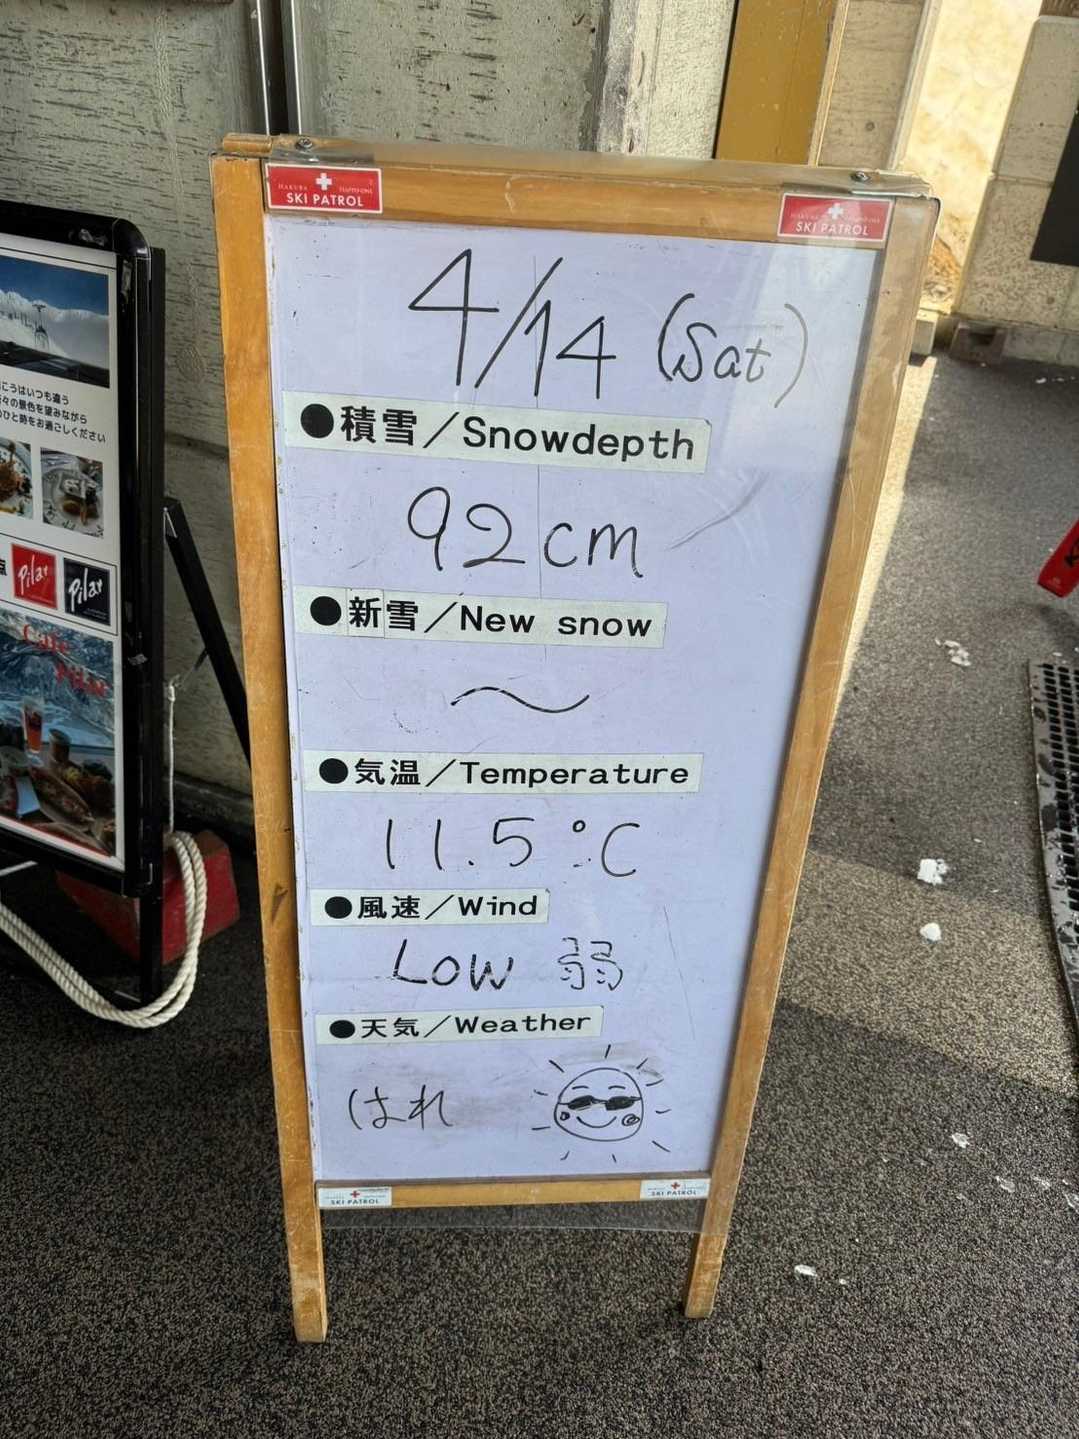 SKI PATROL
SKI PATROL
4/14 (Sat)
●積雪/Snowdepth
92cm
●新雪/New snow
〜
●気温/Temperature
11.5℃
●風速/Wind
Low 弱
●天気/Weather
はれ
SKI PATROL
SKI PATROL
こうはいつも違う
々の景色を望みながら
ひと時をお過ごしください
Pilar
Pilar
Cafe
Pilar